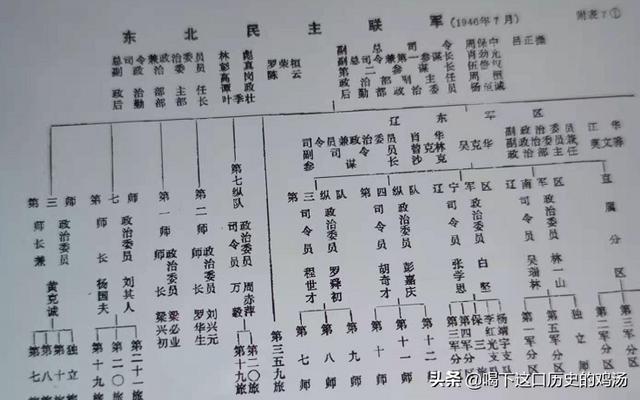 东北民主联军
(1946年7月)
附表7①
总司令兼政治委员 林彪
副政治委员 彭真 罗荣桓
高岗 陈云
政治部主任 谭政
后勤部部长 叶季壮
副总司令 周保中 吕正操
副总司令兼第一参谋长 肖劲光
第二参谋长 伍修权
政治部副主任 周桓
后勤部政治委员 杨至诚
辽东军区
司令员兼政治委员 肖华
副司令员 曾克林 吴克华
参谋长 沙克
副政治委员 江华
副政治委员兼政治部主任 莫文骅
第三师
师长兼政治委员 黄克诚
第七旅
第八旅
第十旅
独立旅
第七师
师长 杨国夫
政治委员 刘其人
第十九旅
第二〇旅
第二十一旅
第一师
师长 梁兴初
政治委员 梁必业
第二师
师长 罗华生
政治委员 刘兴元
第七纵队
司令员 万毅
政治委员 周赤萍
第十九旅
第二〇旅
第三五九旅
第三纵队
司令员 程世才
政治委员 罗舜初
第七师
第八师
第九师
第四纵队
司令员 胡奇才
政治委员 彭嘉庆
第十师
第十一师
第十二师
辽宁军区
司令员 张学思
政治委员 白坚
第三军分区
第四军分区
保三
李红光支队
杨靖宇支队
辽南军区
司令员 吴瑞林
政治委员 林一山
第一军分区
第五军分区
独立师
直属分区
第二军分区
第三军分区
头条 @喝下这口历史的鸡汤